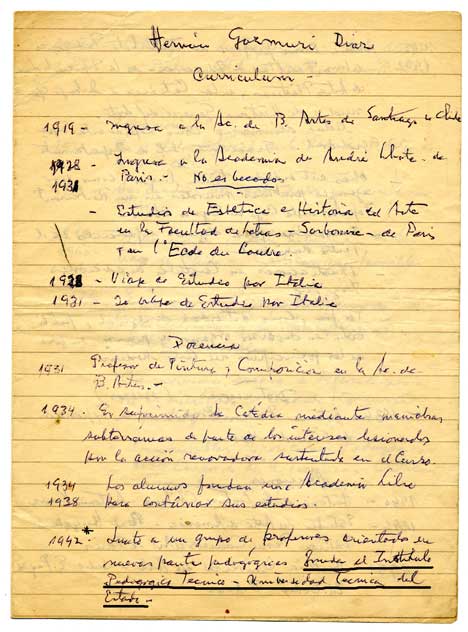 Hernán Gazmuri Diaz
Curriculum -
1919 - Ingresa a la Ac. de B. Artes de Santiago de Chile
1928 - Ingresa a la Academia de André Lhote - de
1931 Paris. - No es becado
- Estudios de Estética e Historia del Arte
en la Facultad de Letras - Sorbonne - de Paris
y en l'Ecole du Louvre.
1928 - Viaje de Estudios por Italia
1931 - 2o viaje de Estudios por Italia
Docencia
1931 Profesor de Pintura y Composición en la Ac. de
B. Artes. -
1934. Es suprimida la Catédra mediante maniobras
subterraneas de parte de los intereses lesionados
por la acción renovadora sustentada en el Curso.
1934 Los alumnos fundan una Academia Libre
1938 para continuar sus estudios.
1942 * Junto a un grupo de profesores orientados en
nuevas pedagógicas funda el Instituto
Pedagógico Tecnico - Universidad Tecnica del
Estado -